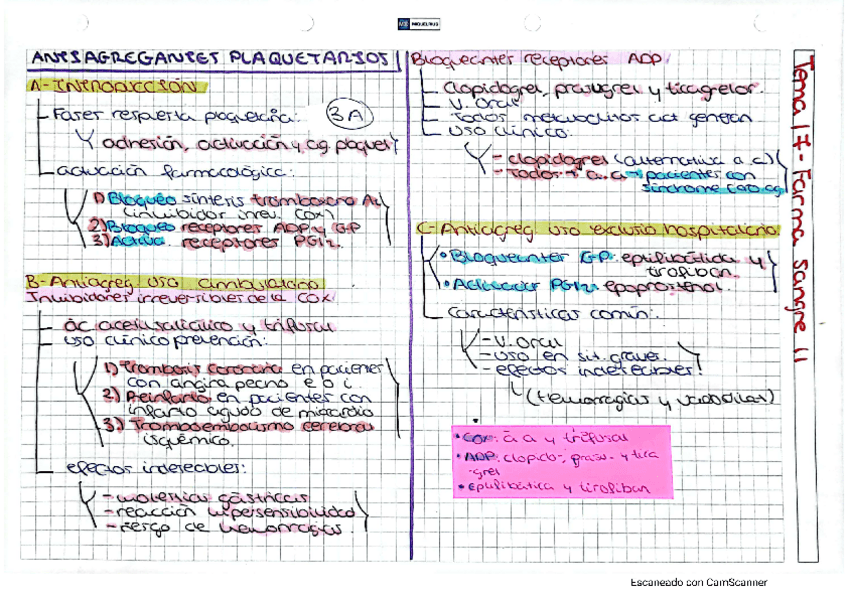 MIQUELRIUS
ANTIAGREGANTES PLAQUETARIOS
A-INTRODUCCIÓN
Fases respuesta plaquetaria:
3A
adhesión, activación y ag. plaquet
actuación farmacológica:
1) Bloqueo síntesis tromboxano A2
(inhibidor irrev. COX)
2) Bloqueo receptores ADP y GP
3) Activa receptores PGI2.
B-Antiagreg uso ambulatorio
Inhibidores irreversibles de la COX:
ác acetilsalicílico y triflusal
uso clínico prevención:
1) Trombosis coronaria en pacientes
con angina pecho e b i.
2) Reinfarto en pacientes con
infarto agudo de miocardio
3) Tromboembolismo cerebral
isquémico.
efectos indeseables:
-molestias gástricas
-reacción hipersensibilidad
-riesgo de hemorragias.
Bloqueantes receptores ADP
Clopidogrel, prasugrel y ticagrelor.
V. Oral
Todos metabolitos act generan
Uso clínico:
-clopidogrel (alternativa a.a)
-Todos + a.a → pacientes con
síndrome coo ag
C-Antiagreg uso exclusio hospitalario
• Bloqueantes G-P: eptifibátida y
tirofiban.
• Activador PGI2: epoprostenol.
Características común:
-V. Oral
-uso en sit. graves.
-efectos indeseables!
(Hemorragias y vasodilat)
• COX: a a y triflusal
• ADP: clopido-, prasu- y tica
-grel
• Eptifibática y tirofiban
Tema 17 - Farma Sangre II
Escaneado con CamScanner